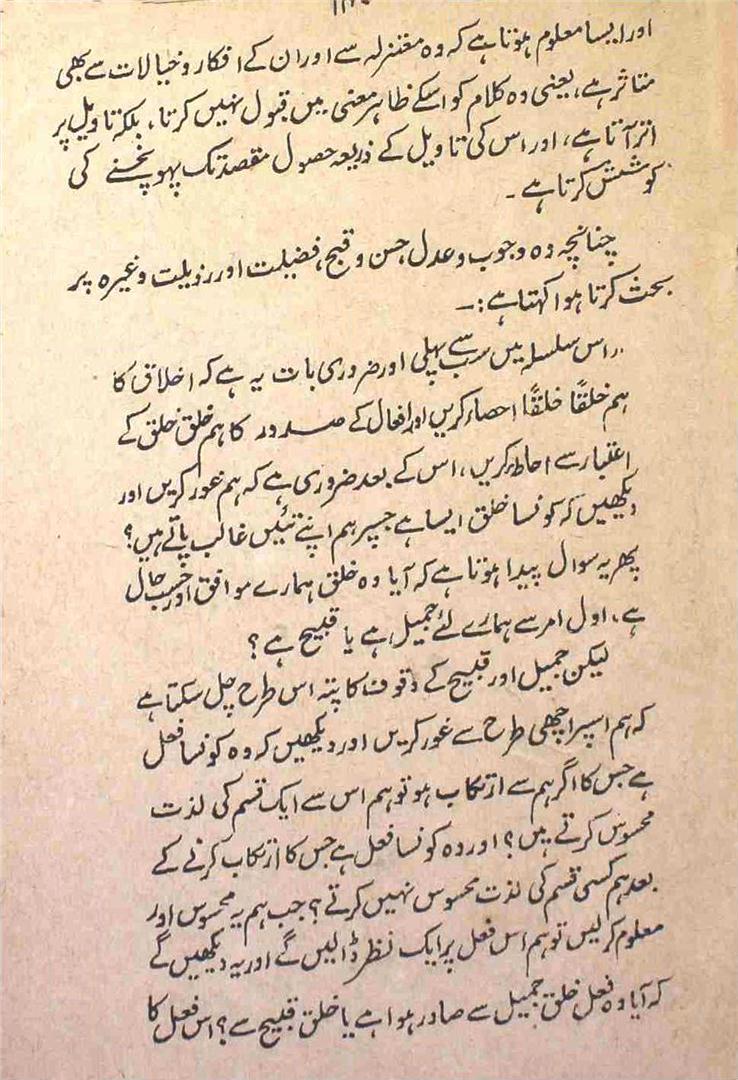 اور ایسا معلوم ہوتا ہے کہ وہ معتزلہ سے اور ان کے افکار و خیالات سے بھی
متاثر ہے، یعنی وہ کلام کو اسکے ظاہر معنی میں قبول نہیں کرتا، بلکہ تاویل پر
اتر آتا ہے، اور اس کی تاویل کے ذریعہ حصول مقصد تک پہونچنے کی
کوشش کرتا ہے۔
چنانچہ وہ وجوب و عدل، حسن و قبح، فضیلت اور رذیلت وغیرہ پر
بحث کرتا ہوا کہتا ہے :۔
"اس سلسلہ میں سب سے پہلی اور ضروری بات یہ ہے کہ اخلاق کا
ہم خلقًا خلقًا احصاء کریں اور افعال کے صدور کا ہم خلق خلق کے
اعتبار سے احاطہ کریں، اس کے بعد ضروری ہے کہ ہم غور کریں اور
دیکھیں کہ کونسا خلق ایسا ہے جسپر ہم اپنے تئیں غالب پاتے ہیں؟
پھر یہ سوال پیدا ہوتا ہے کہ آیا وہ خلق ہمارے موافق اور حسب حال
ہے، اول امر سے ہمارے لئے جمیل ہے یا قبیح ہے؟
لیکن جمیل اور قبیح کے وقوف کا پتہ اس طرح چل سکتا ہے
کہ ہم اسپر اچھی طرح سے غور کریں اور دیکھیں کہ وہ کونسا فعل
ہے جس کا اگر ہم سے ارتکاب ہو تو ہم اس سے ایک قسم کی لذت
محسوس کرتے ہیں؟ اور وہ کونسا فعل ہے جس کا ارتکاب کرنے کے
بعد ہم کسی قسم کی لذت محسوس نہیں کرتے؟ جب ہم یہ محسوس اور
معلوم کر لیں تو ہم اس فعل پر ایک نظر ڈالیں گے اور یہ دیکھیں گے
کہ آیا وہ فعل خلق جمیل سے صادر ہوا ہے یا خلق قبیح سے؟ اس فعل کا